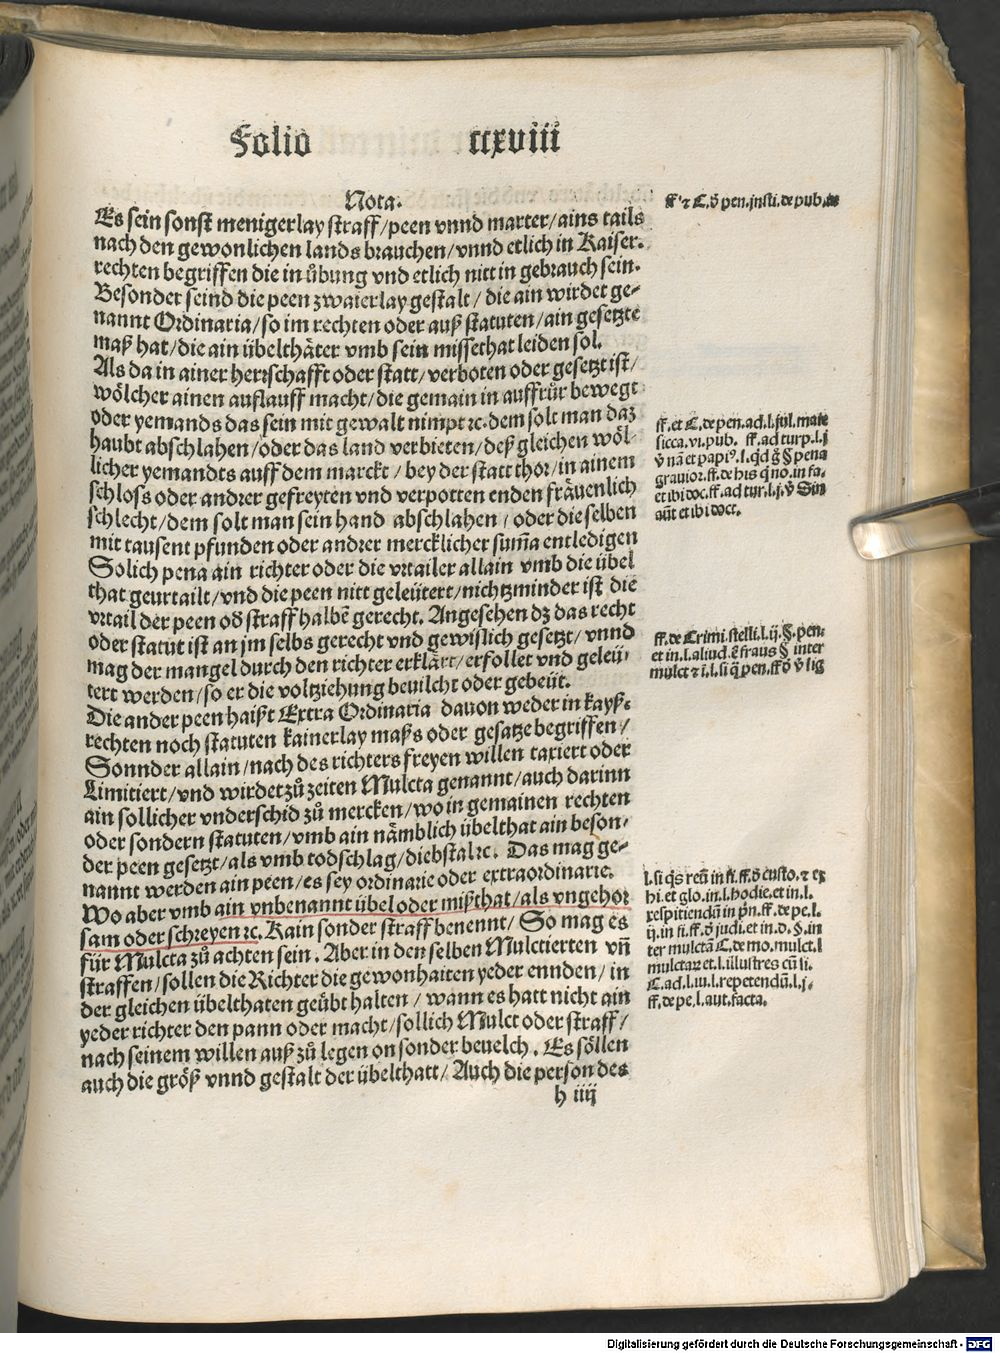 Folio ccxviii
Nota.
Es sein sonst menigerlay straff/peen vnnd marter/ains tails
nach den gewonlichen lands brauchen/vnnd etlich in Kaiser.
rechten begriffen die in uͤbung vnd etlich nitt in gebrauch sein.
Besonder seind die peen zwaierlay gestalt/die ain wirdet ge-
nannt Ordinaria/so im rechten oder auß statuten/ain gesetzte
maß hat/die ain uͤbelthaͤter vmb sein missethat leiden sol.
Als da in ainer herrschafft oder statt/verboten oder gesetzt ist/
woͤlcher ainen aufflauff macht/die gemain in auffruͤr bewegt
oder yemands das sein mit gewalt nimpt ꝛc. dem solt man daz
haubt abschlahen/oder das land verbieten/deß gleichen woͤl-
licher yemandts auff dem marckt/bey der statt thor/in ainem
schloss oder andrer gefreyten vnd verpotten enden fraͤuenlich
schlecht/dem solt man sein hand abschlahen/oder die selben
mit tausent pfunden oder andrer mercklicher sum̃a entledigen
Solich pena ain richter oder die vrtailer allain vmb die uͤbel
that geurtailt/vnd die peen nitt geleuͤtert/nichtzminder ist die
vrtail der peen od straff halbẽ gerecht. Angesehen dz das recht
oder statut ist an jm selbs gerecht vnd gewislich gesetzt/vnnd
mag der mangel durch den richter erklaͤrt/erfollet vnd geleuͤ-
tert werden/so er die voltziehung beuilcht oder gebeuͤt.
Die ander peen haißt Extra Ordinaria dauon weder in kayß.
rechten noch statuten kainerlay maßs oder gesatze begriffen/
Sonnder allain/nach des richters freyen willen taxiert oder
Limitiert/vnd wirdet zuͦ zeiten Mulcta genannt/auch darinn
ain sollicher vnderschid zuͦ mercken/wo in gemainen rechten
oder sondern statuten/vmb ain naͤmblich uͤbelthat ain beson-
der peen gesetzt/als vmb todschlag/diebstal ꝛc. Das mag ge-
nannt werden ain peen/es sey ordinarie oder extraordinarie.
Wo aber vmb ain vnbenannt uͤbel oder mißthat/als vngehor
sam oder schreyen ꝛc. Kain sonder straff benennt/So mag es
fuͤr Mulcta zuͦ achten sein. Aber in den selben Mulctierten vñ
straffen/sollen die Richter die gewonhaiten yeder ennden/in
der gleichen uͤbelthaten geuͤbt halten/wann es hatt nicht ain
yeder richter den pann oder macht/sollich Mulct oder straff/
nach seinem willen auß zuͦ legen on sonder beuelch. Es soͤllen
auch die groͤß vnnd gestalt der uͤbelthatt/Auch die person des
h iiij
ff ⁊ C. pen. insti. de pub.
ff. et C. de pen. ad. l. jul. maie
sicca. vi. pub. ff. ad turp. l. j
nã et papi. l. pena
grauior. ff. de his no. in fa.
et ibi doc. ff. ad tur. l. j. Sin
aũt et ibi doct.
ff. de Crimi. stelli. l. ij. §. pen.
et in. l. aliud. fraus § inter
mulct ⁊ l. si pen. ff lig
l. si reũ in fi. ff. custo. ⁊ ex
hi. et glo. in. l. hodie. et in. l.
respitiendũ in prin. ff. de pe. l.
ij. in fi. ff. judi. et in. d. §. in
ter mulctã C. de mo. mulct. l
mulctarz et. l. illustres cũ li.
C. ad. l. iu. l. repetendũ. l. j.
ff. de pe. l. aut. facta.
Digitalisierung gefördert durch die Deutsche Forschungsgemeinschaft - DFG